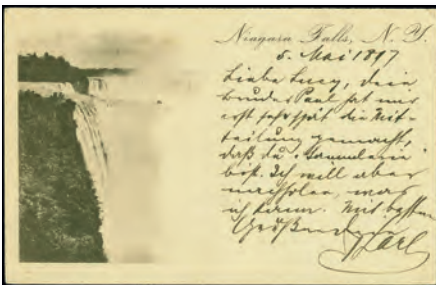 Niagara Falls, N. Y.
5. Mai 1897
Liebe Lucy, dein
bruder Paul hat mir
erst sehr spät die Mit-
teilung gemacht,
daß du "Sammlerin"
bist. Ich will aber
nachholen, was
ich kann. Mit besten
Grüßen
Karl